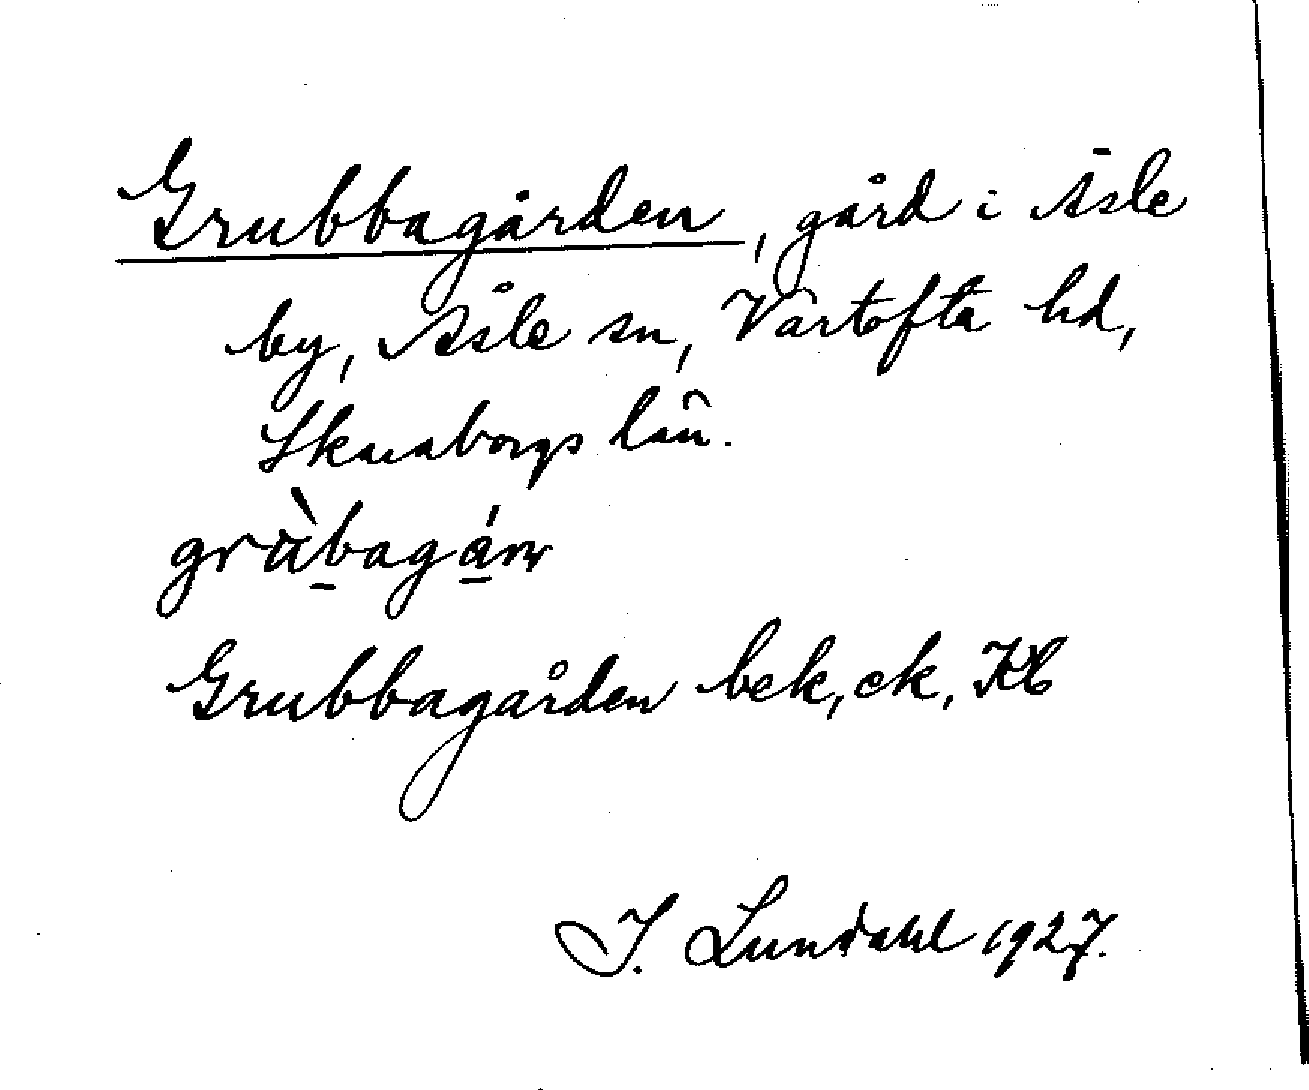 Grubbagården, gård i Åsle
by, Åsle sn, Vartofta hd,
Skaraborgs län.
gru̇̀bagán
Grubbagården bek, ek, Kb
I. Lundahl 1927.